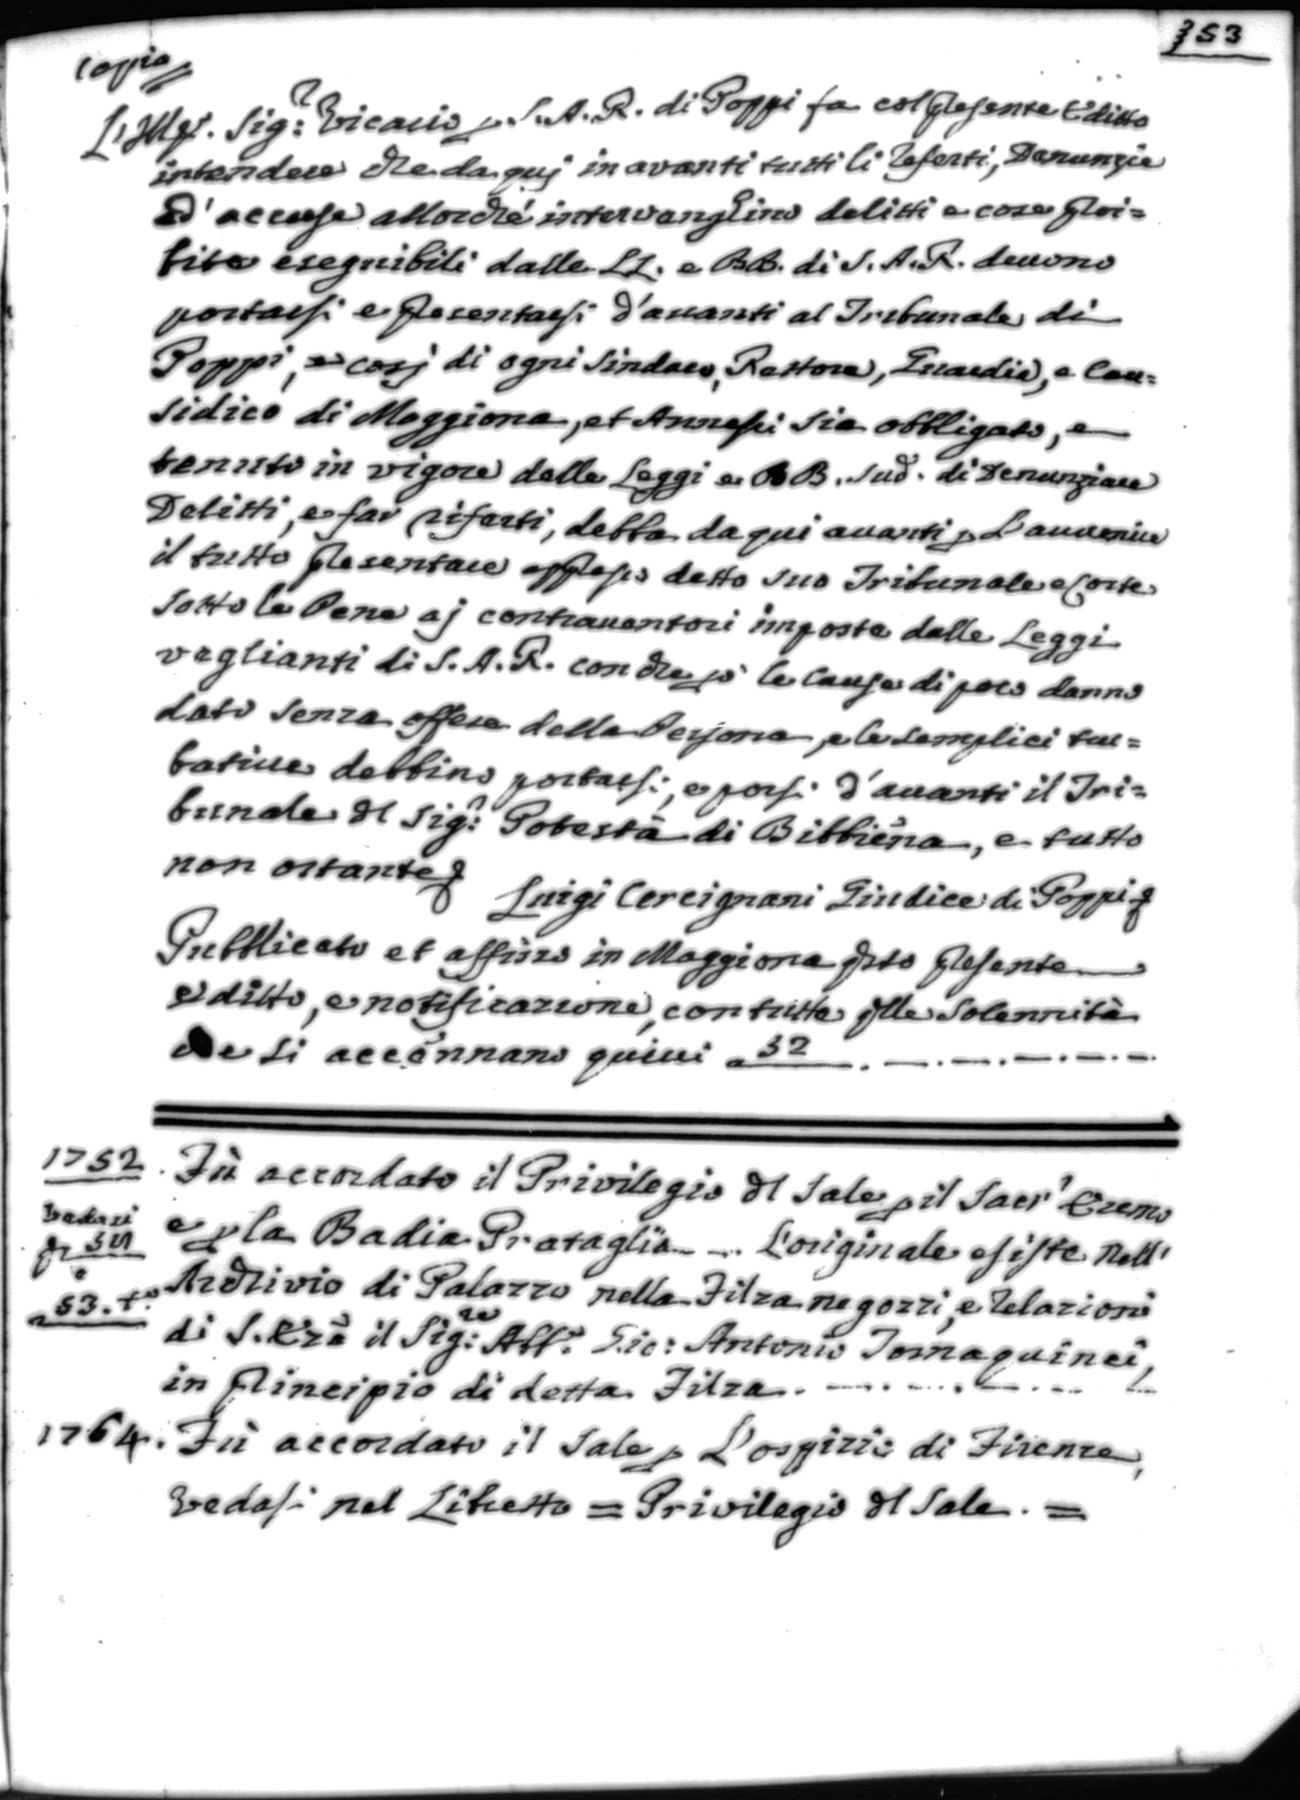 353
Copia
L'Illmo. Sig:r Vicario p S.A.R. di Poppi fa col presente Editto
intendere che da quj in avanti tutti li referti, Denunzie
Ed' accuse allorché intervenghino delitti e cose proi=
bite eseguibili dalle LL. e BB. di S.A.R. devono
portarsi e presentarsi d'avanti al Tribunale di
Poppi, e cosj di ogni Sindaco, Rettore, Guardia, e Cau=
sidico di Moggiona, et Annessi sia obbligato, e
tenuto in vigore delle Leggi e BB. sud. di Denunziare
Delitti, e far riferti, debba da qui avanti p L'avvenire
il tutto presentare appresso detto suo Tribunale e Corte
sotto le Pene aj contraventori imposte dalle Leggi
veglianti di S.A.R. con che p.ò le Cause di poco danno
dato senza offesa della Persona, e le semplici tur=
bative debbino portarsi, e porsi d'avanti il Tri=
bunale dl Sig:r Potestà di Bibbiena, e tutto
non ostante
Luigi Cercignani Giudice di Poppi
Pubblicato et affisso in Moggiona qsto presente
editto, e notificazione, con tutte qlle solennità
che si accennano quivi a 52
1752. Fù accordato il Privilegio dl Sale p il Sacr' Eremo
Vedasi
e p la Badia Prataglia - .. L'originale esiste nell'
Archivio di Palazzo nella Filza negozzi, e relazioni
53. t.o
di S. Ecza il Sig:re Abb.e Gio: Antonio Tornaquinci,
in principio di detta Filza.
1764. Fù accordato il Sale p L'ospizio di Firenze,
vedasi nel Libretto = Privilegio dl Sale. =